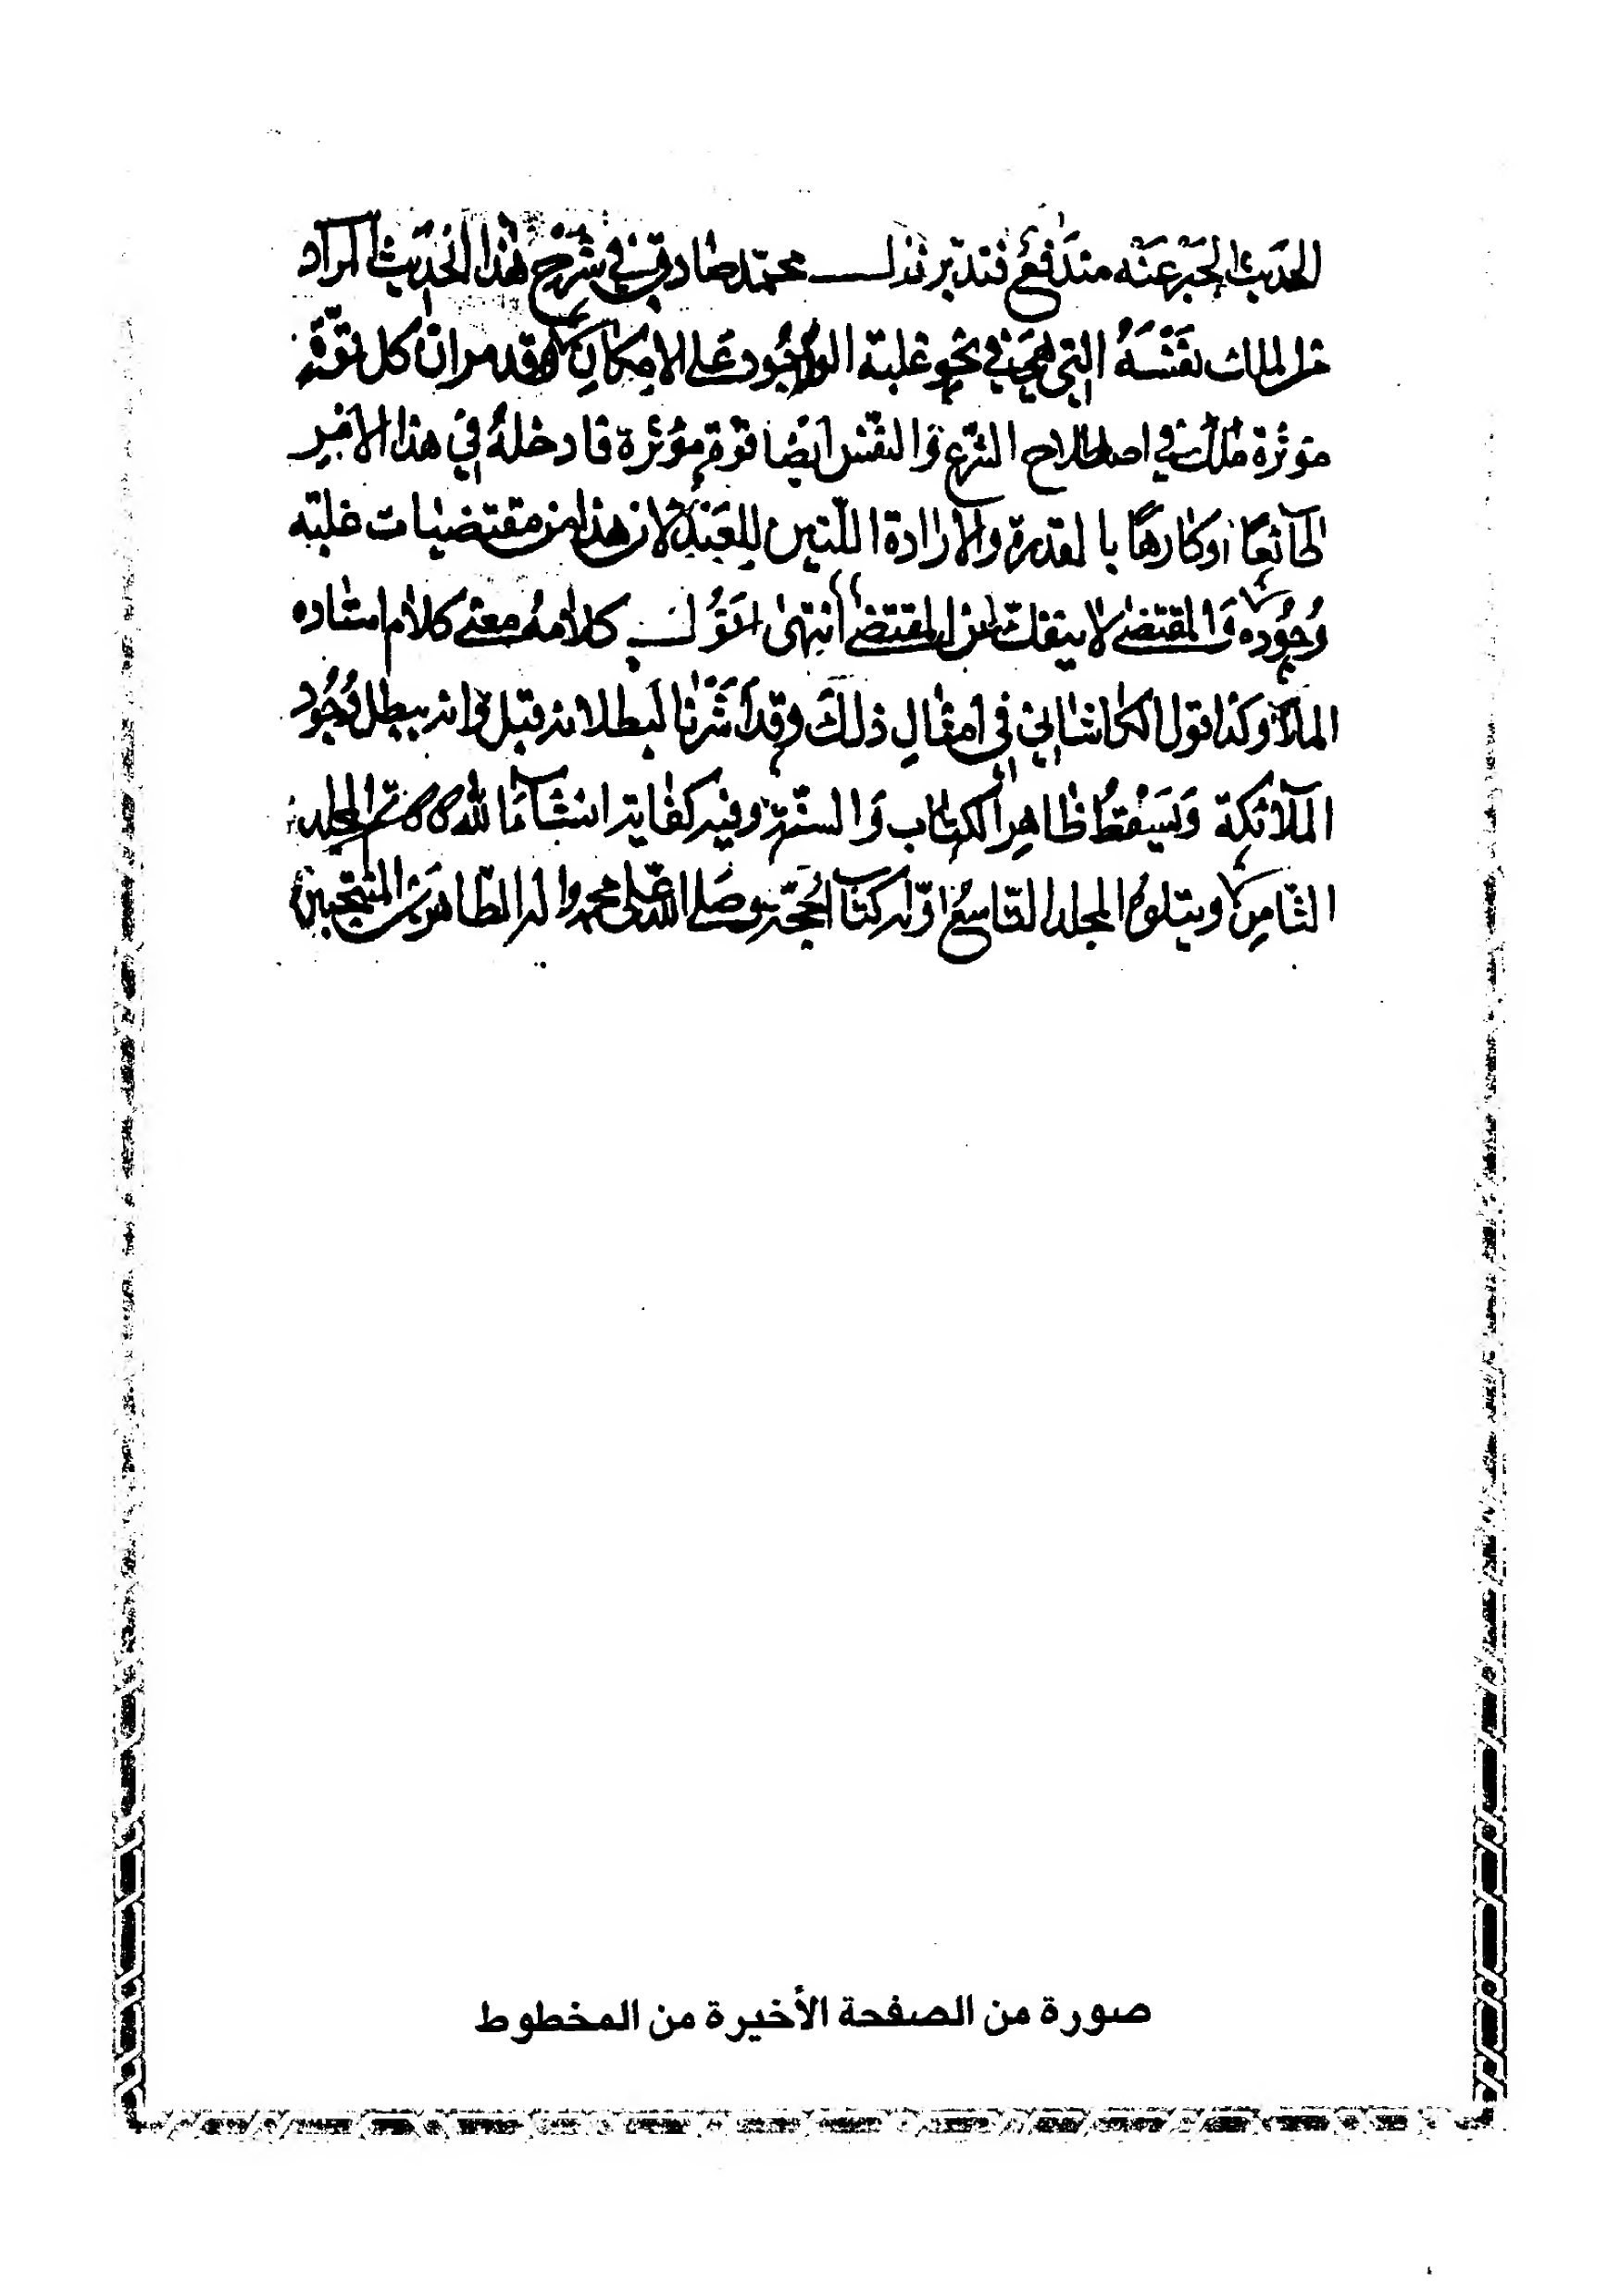 الحَدَيث الجَبَر عَنَه متدَافع فتدبّر محمّد صٰادق في شَرْح هٰذا الحَديث المرٰاد
من الملك نفَسَهُ التي هيَ في نحو غلبة الوجُود عَلى الامكانِ وقد مر ان كل قوّة
موَثرة ملك في اصطلاح الشَرع وَالنفسْ ايضًا قوّة مؤثرة قا دخلهُ في هذا الامير
طآئعًا اوَكٰارهًا بالقدرة والارٰادة اللّتين للعَبْدِ لان هذا من مقتضيٰات غلبة
وُجُوده وَالمقتضٰى لا ينفكّ عن المقتضٰى انتهىٰ اقوُل كلاٰمهُ معنى كلاٰم استٰاده
الملاّ وكذا قول الكٰاشٰاني في امثٰالِ ذلكَ وقد اَشَرْنٰا لبطلانه قبل وانه يبطل وُجُود
المَلاٰئكة وَيَسَقطُ ظاهِر الكتٰاب وَالسنّة وفيه كفٰاية انشآءَ الله تم المجلد
الثٰامِن ويتلوهُ المجلد التّاسعُ اوّله كتٰاب الحُجّة وصَلى الله عَلى محمد واله الطّاهرين المنتجبين
صورة من الصفحة الأخيرة من المخطوط